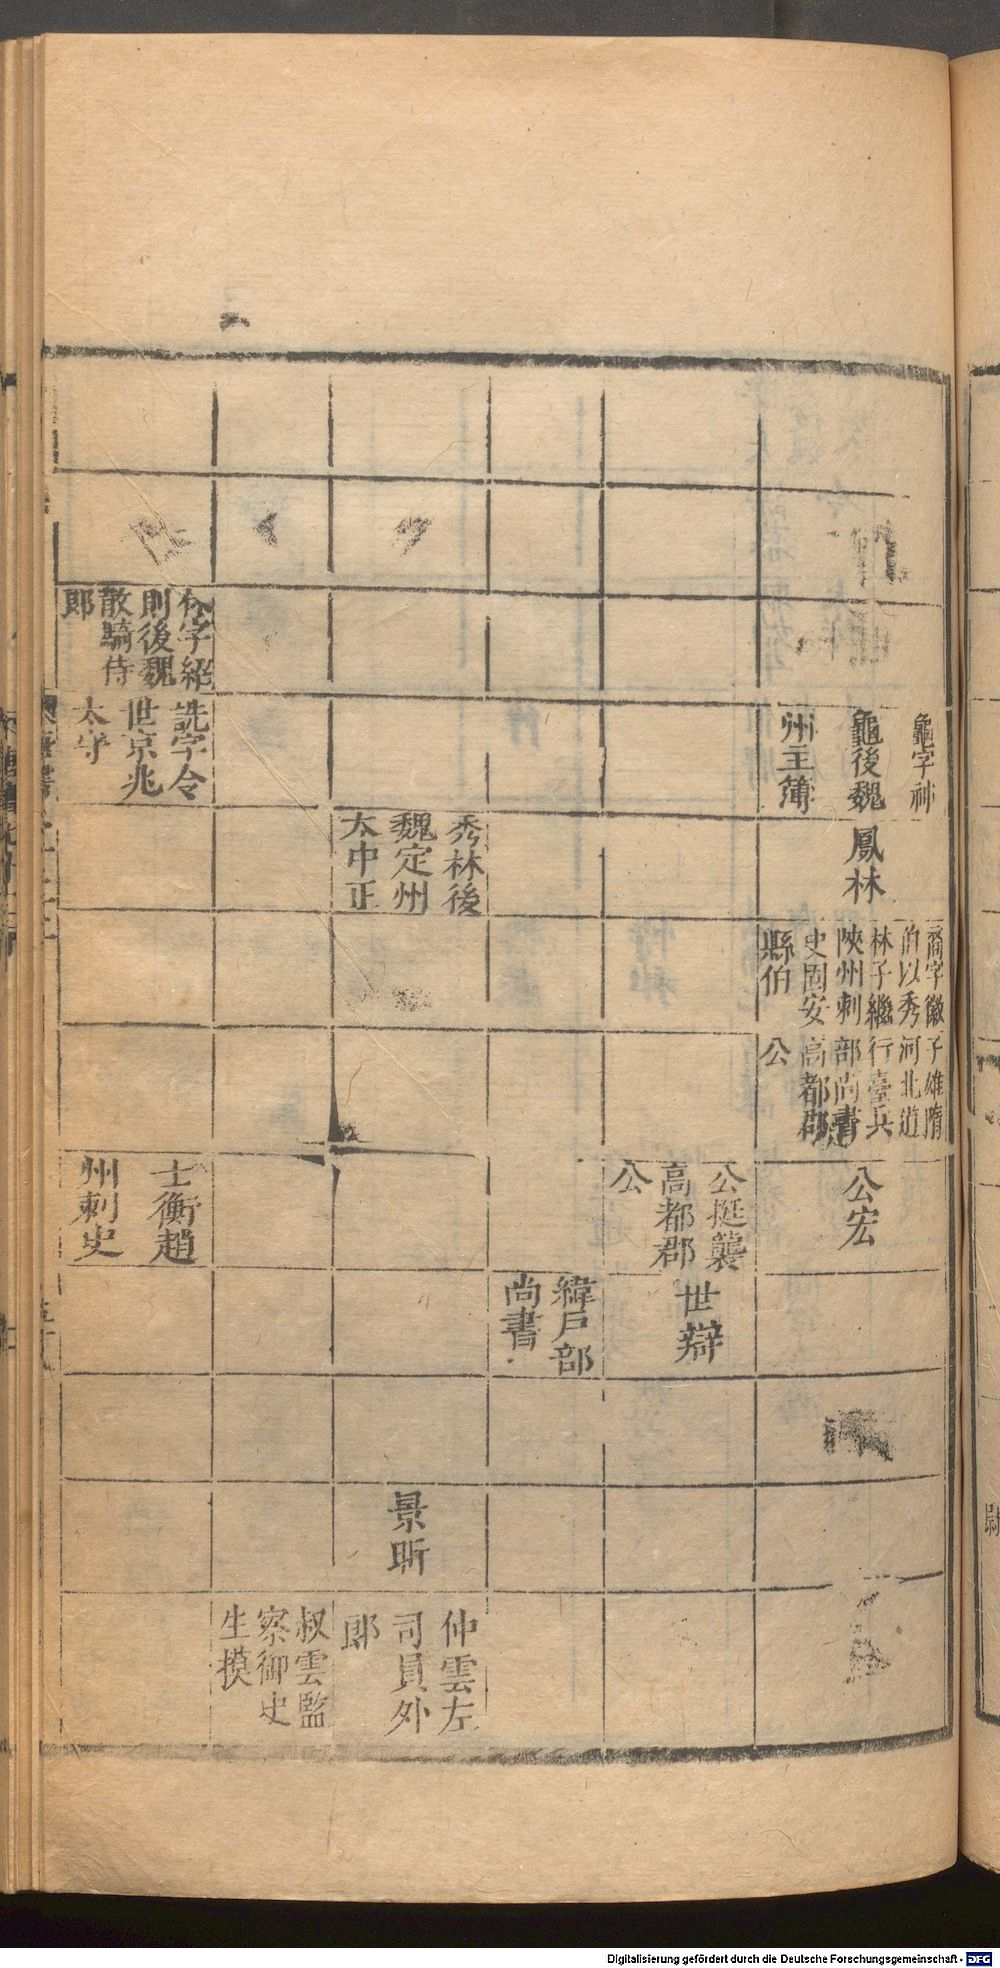 龜字神
龜後魏
州主簿
鳳林
裔字徽
伯以秀
林子繼
陝州刺
史固安
縣伯
子雄隋
河北道
行臺兵
部尚書
高都郡
公
公宏
公挺襲
高都郡
公
世辯
緯戶部
尚書
秀林後
魏定州
太中正
景昕
仲雲左
司員外
郎
叔雲監
察御史
生摸
字紹
則後魏
散騎侍
郎
詵字令
世京兆
太守
士衡趙
州刺史
Digitalisierung gefördert durch die Deutsche Forschungsgemeinschaft - DFG